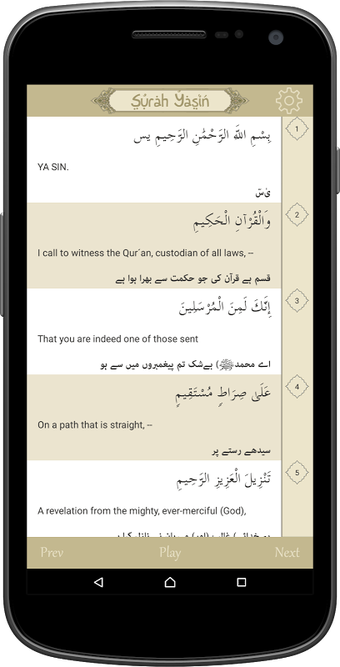 Surah Yasin
1
بِسْمِ اللَّهِ الرَّحْمَٰنِ الرَّحِيمِ يس
YA SIN.
يٰسٓ
2
وَالْقُرْآنِ الْحَكِيمِ
I call to witness the Qur´an, custodian of all laws, --
قسم ہے قرآن کی جو حکمت سے بھرا ہوا ہے
3
إِنَّكَ لَمِنَ الْمُرْسَلِينَ
That you are indeed one of those sent
اے محمدﷺ) بےشک تم پیغمبروں میں سے ہو
4
عَلَىٰ صِرَاطٍ مُسْتَقِيمٍ
On a path that is straight, --
سیدھے رستے پر
5
تَنْزِيلَ الْعَزِيزِ الرَّحِيمِ
A revelation from the mighty, ever-merciful (God),
Prev Play Next